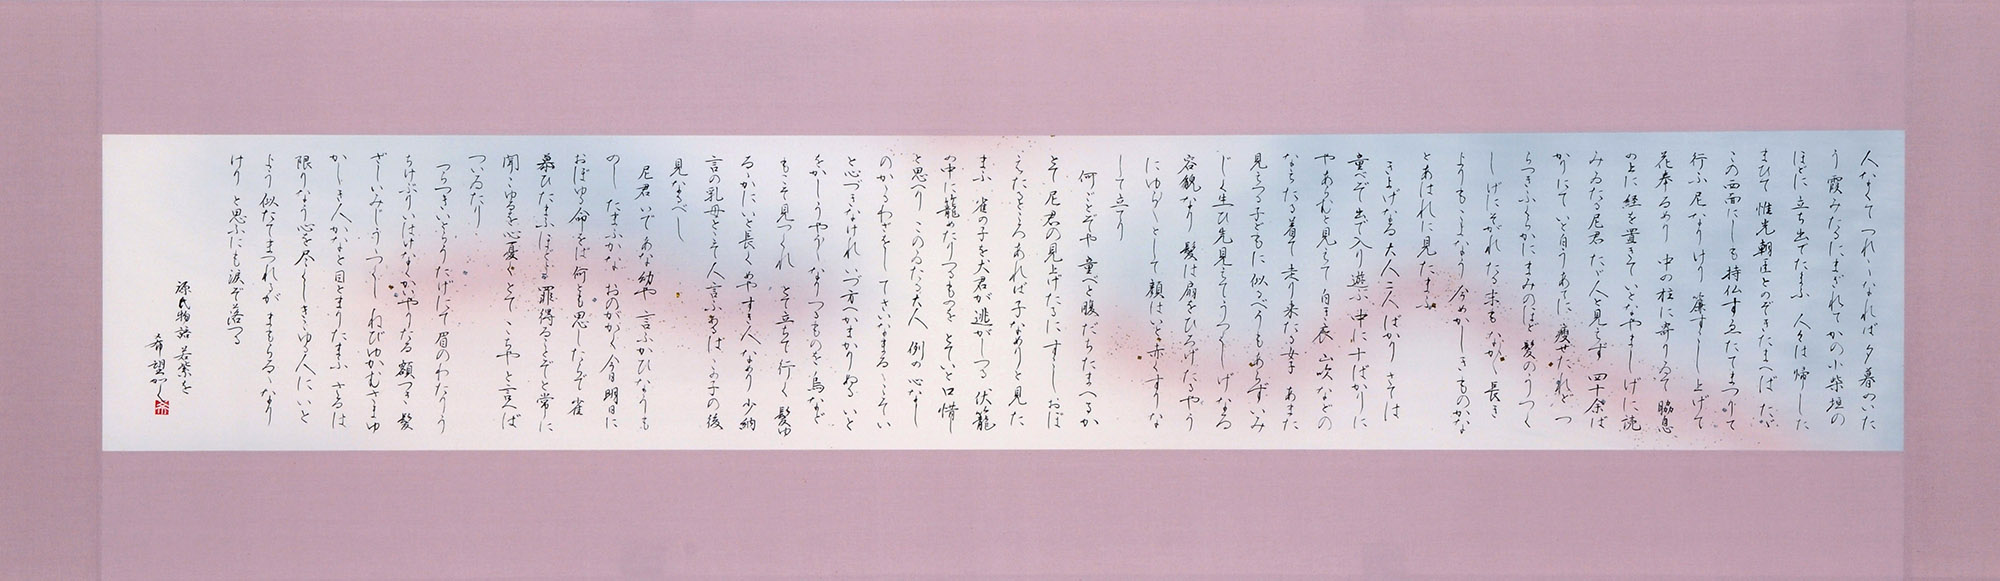 人なくてつれ〳〵なれば夕暮のいた
う霞みたるにまぎれてかの小柴垣の
ほどに立ち出でたまふ 人々は帰した
まひて惟光朝臣とのぞきたまへば たゞ
この西面にしも持仏すゑたてまつりて
行ふ尼なりけり 簾すこし上げて
花奉るめり 中の柱に寄りゐて脇息
の上に経を置きていとなやましげに読
みゐたる尼君たゞ人と見えず 四十余ば
かりにていと白うあてに痩せたれどつ
らつきふくらかにまみのほど髪のうつく
しげにそがれたる末もなか〳〵長き
よりもこよなう今めかしきものかな
とあはれに見たまふ
きよげなる大人二人ばかりさては
童べぞ出で入り遊ぶ 中に十ばかりに
やあらむと見えて白き衣 山吹などの
なえたる着て走り来たる女子 あまた
見えつる子どもに似るべうもあらずいみ
じく生ひ先見えてうつくしげなる
容貌なり 髪は扇をひろげたるやう
にゆら〳〵として顔はいと赤くすりな
して立てり
何ごとぞや童べと腹だちたまへるか
とて 尼君の見上げたるにすこしおぼ
えたるところあれば子なめりと見た
まふ 雀の子を犬君が逃がしつる 伏籠
の中に籠めたりつるものを とていと口惜し
と思へり このゐたる大人 例の心なし
のかゝるわざをしてさいなまるゝこそい
と心づきなけれ いづ方へかまかりぬる いと
をかしうやう〳〵なりつるものを 烏など
もこそ見つくれ とて立ちて行く 髪ゆ
るゝかにいと長くめやすき人なめり 少納
言の乳母とこそ人言ふめるは この子の後
見なるべし
尼君 いであな幼や 言ふかひなうも
のしたまふかな おのがかく今日明日に
おぼゆる命をば何とも思したらで雀
慕ひたまふほどよ 罪得ることぞと常に
聞こゆるを心憂く とて こちや と言へば
ついゐたり
つらつきいとらうたげにて眉のわたりう
ちけぶりいはけなくかいやりたる額つき髪
ざしいみじううつくし ねびゆかむさまゆ
かしき人かなと目とまりたまふ さるは
限りなう心を尽くしきこゆる人にいと
よう似たてまつれるが まもらるゝなり
けり と思ふにも涙ぞ落つる
源氏物語 若紫を
希望かく